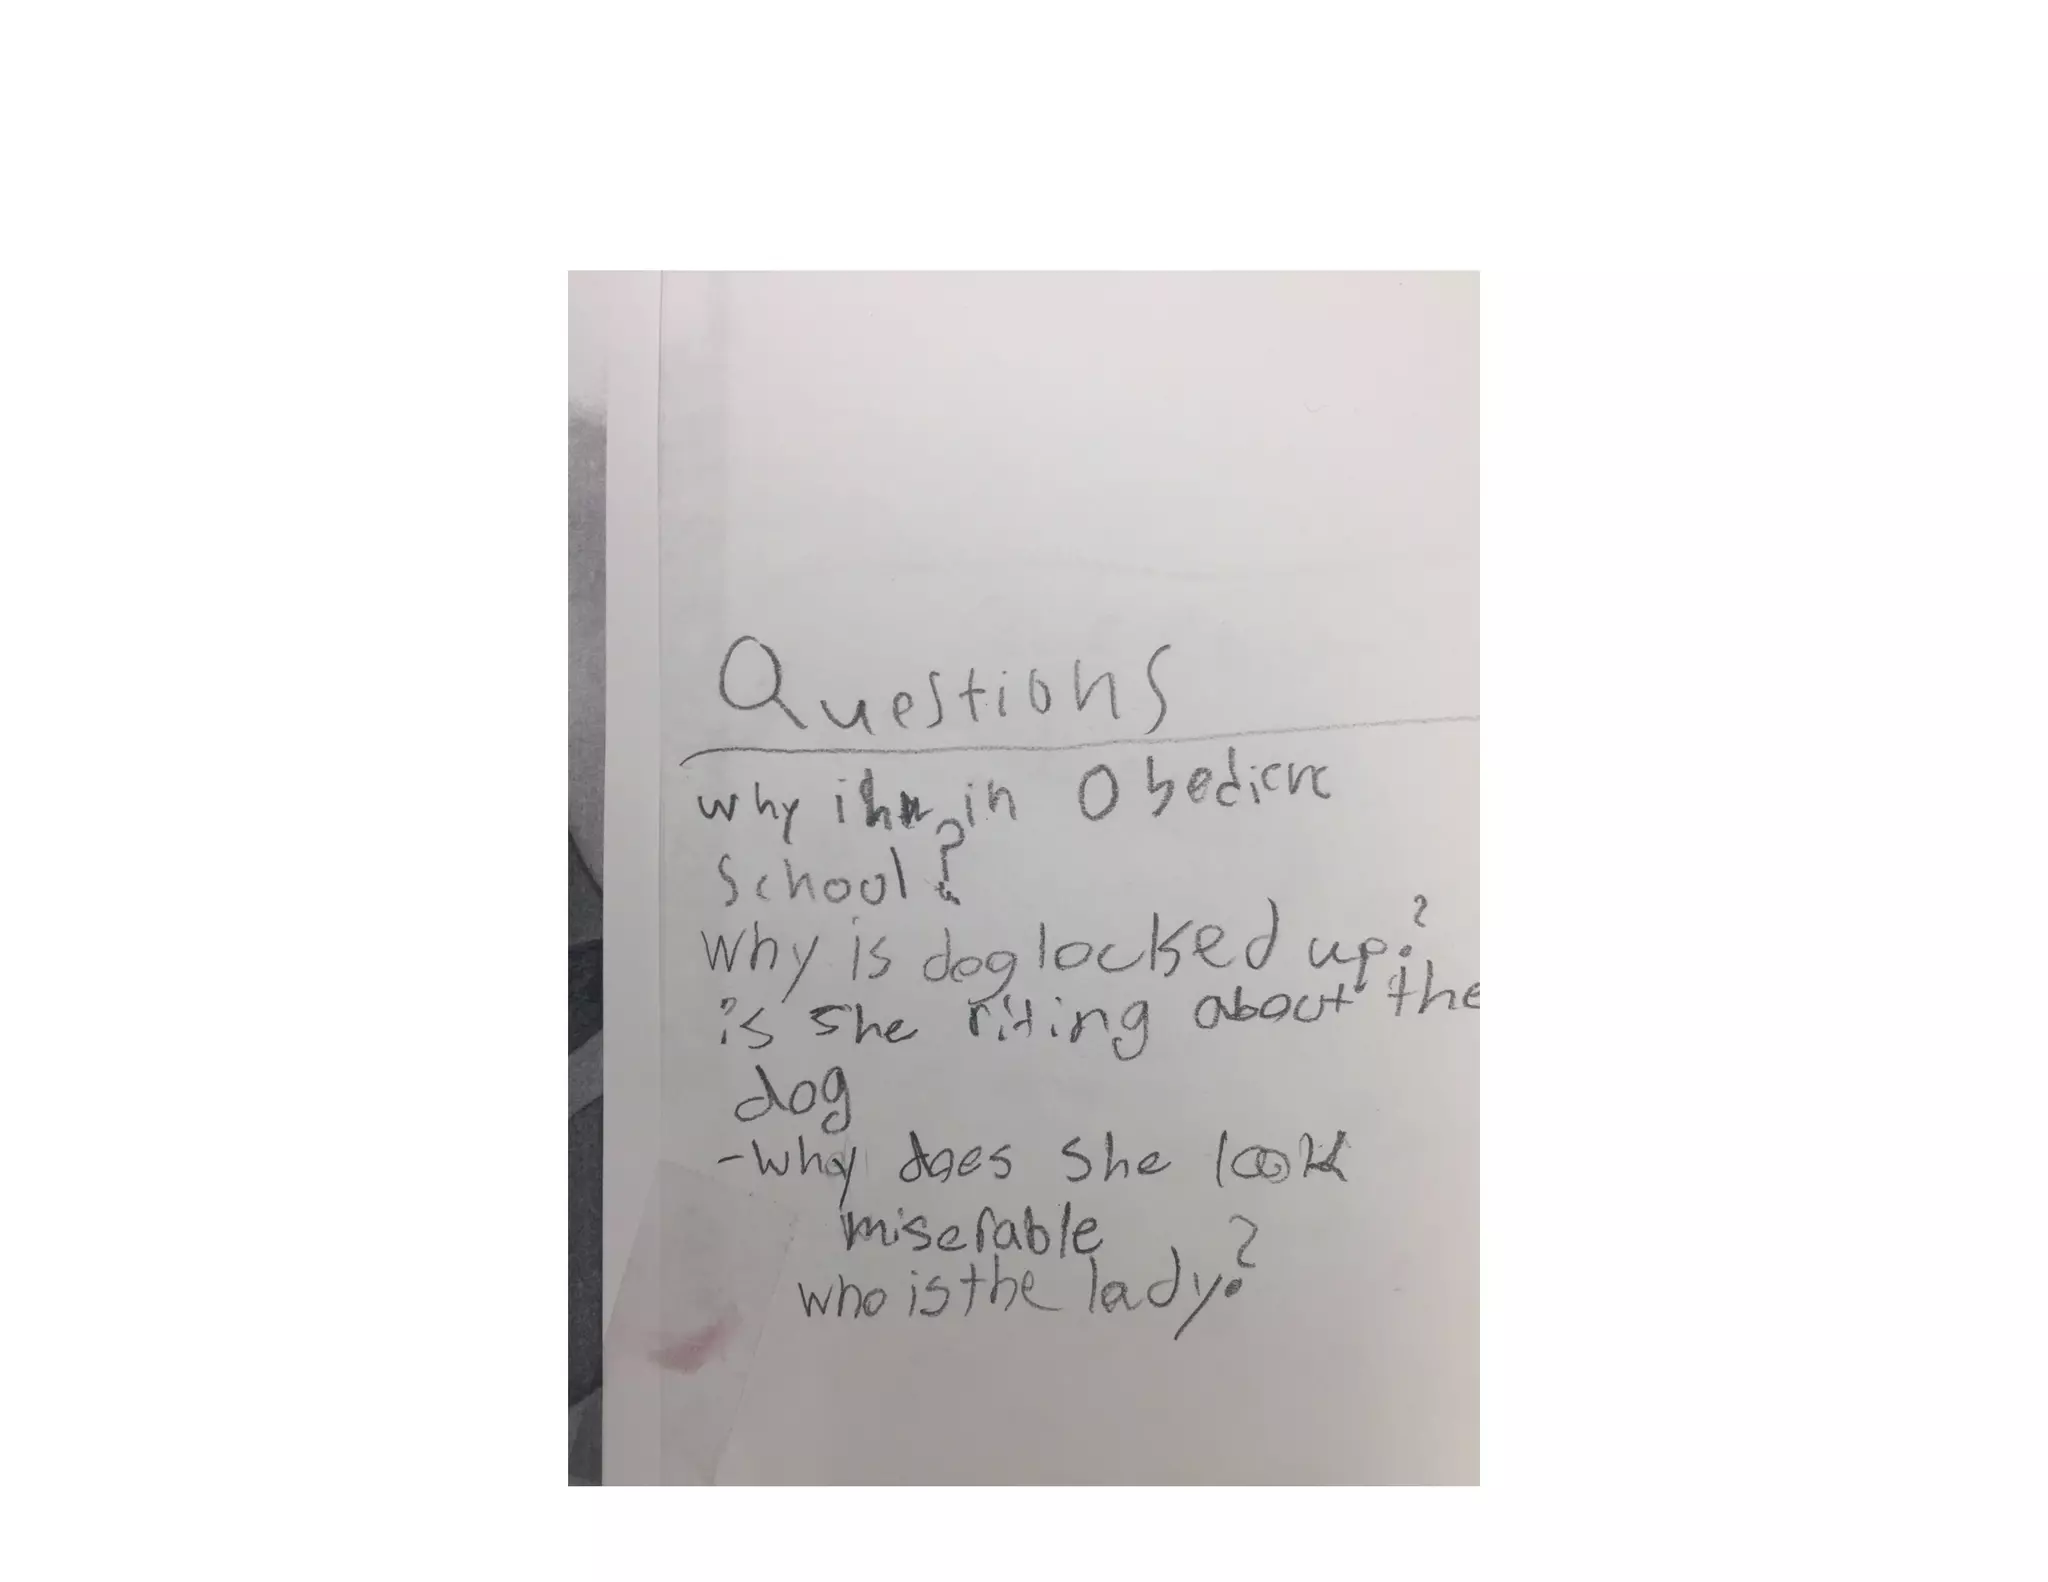 Questions
why in Obedienc
School?
Why is dog locked up?
is she riting about the
dog
- Why does she look
miserable
who is the lady?